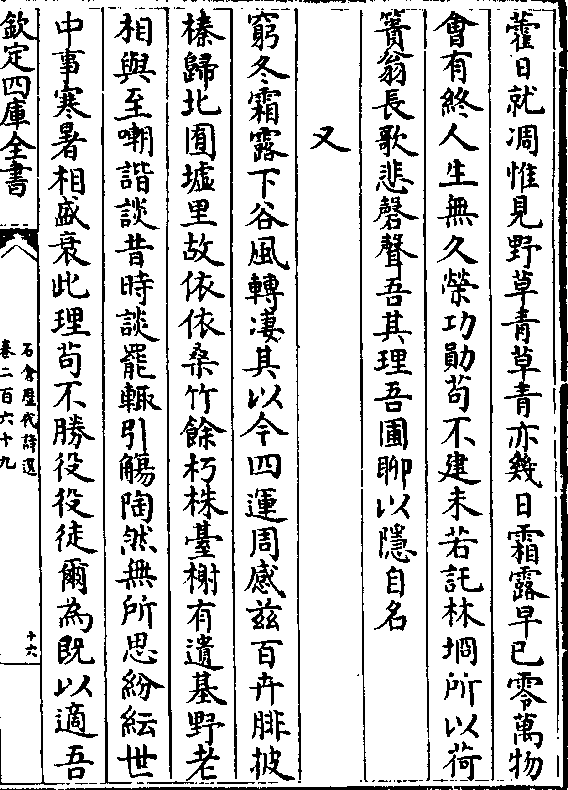 藿日就凋惟見野草青草青亦幾日霜露早已零萬物
會有終人生無久榮功勛苟不建未若託林坰所以荷
蕢翁長歌悲磬聲吾其理吾圃聊以隱自名
又
窮冬霜露下谷風轉凄其以今四運周感兹百卉腓披
榛歸北囿墟里故依依桑竹餘朽株臺榭有遺基野老
相與至嘲諧談昔時談罷輒引觴陶然無所思紛紜世
中事寒暑相盛衰此理苟不勝役役徒爾為既以適吾
欽定四庫全書
石倉歷代詩選
卷二百六十九
十六